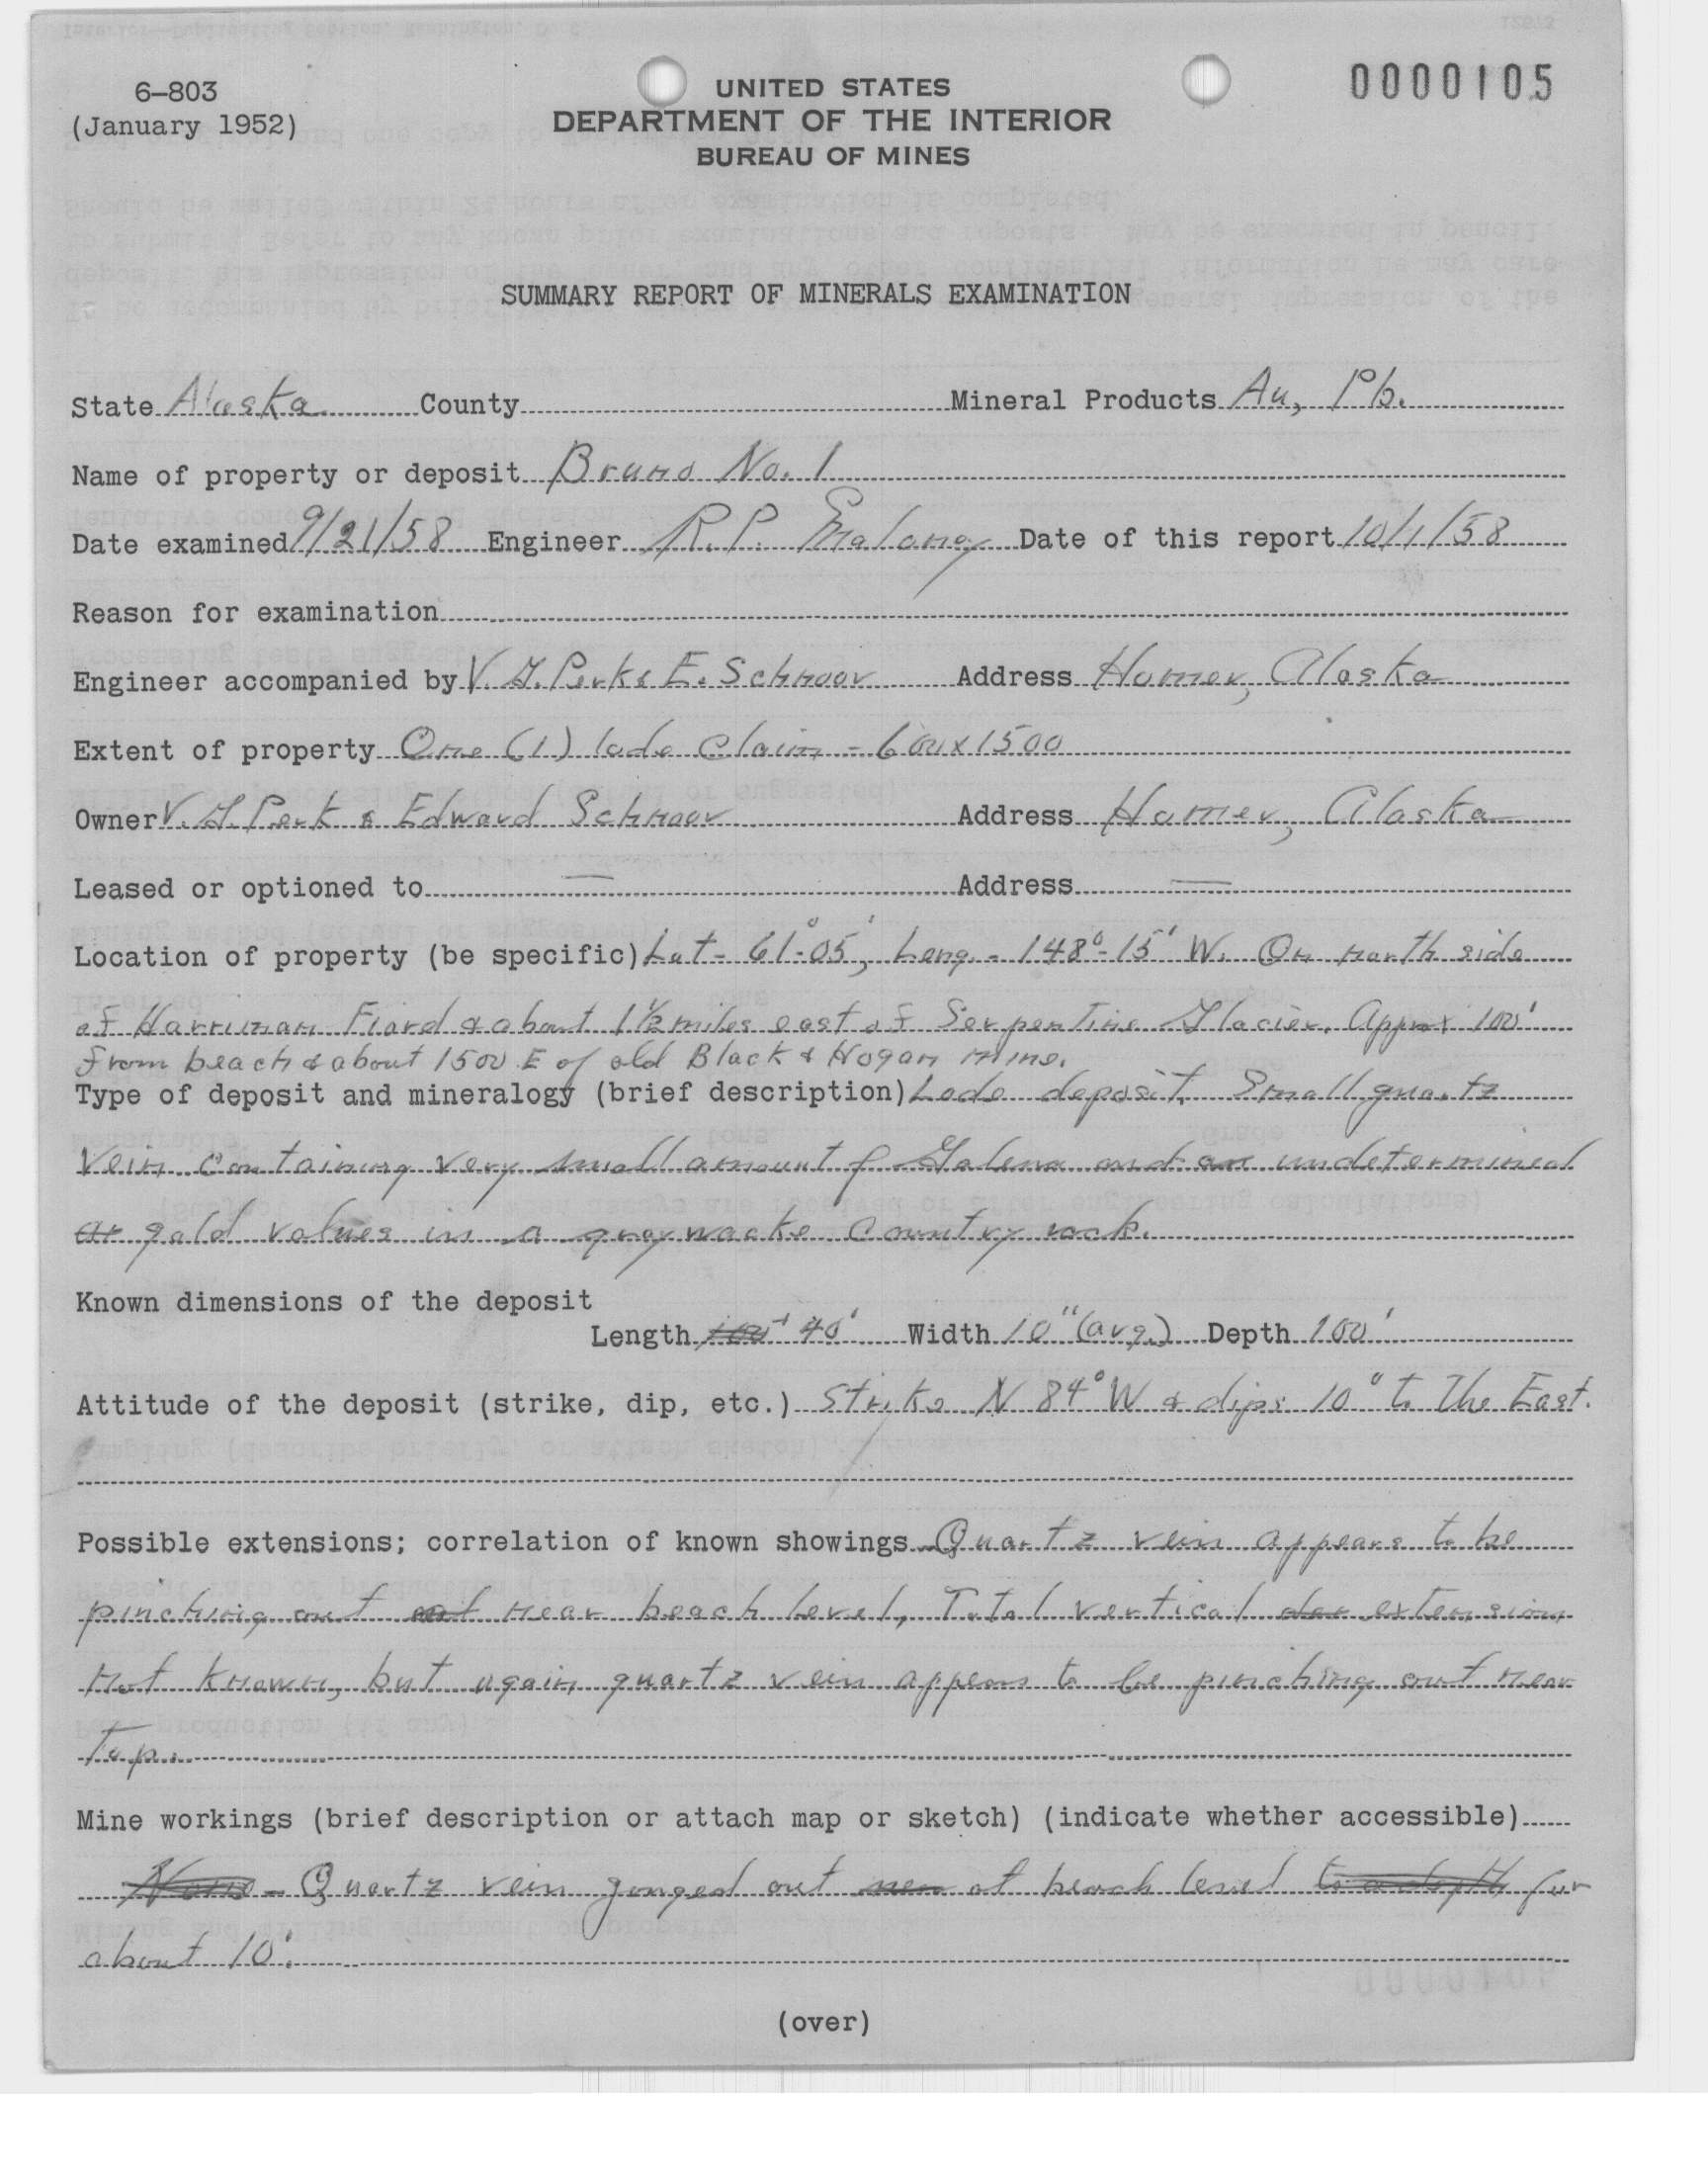 6-803
(January 1952)
UNITED STATES
DEPARTMENT OF THE INTERIOR
BUREAU OF MINES
0000105
SUMMARY REPORT OF MINERALS EXAMINATION
State Alaska County Mineral Products Au, Pb.
Name of property or deposit Bruno No. 1
Date examined 9/21/58 Engineer R.P. Maloney Date of this report 10/1/58
Reason for examination
Engineer accompanied by V. G. Perk & E. Schnoor Address Homer, Alaska
Extent of property One (1) lode claim - 600 x 1500
Owner V. G. Perk & Edward Schnoor Address Homer, Alaska
Leased or optioned to — Address —
Location of property (be specific) Lat - 61°-05', Long. - 148°-15' W. On north side
of Harriman Fiard & about 1½ miles east of Serpentine Glacier. Approx 100'
from beach & about 1500 E of old Black & Hogan mine.
Type of deposit and mineralogy (brief description) Lode deposit. Small quartz
vein containing very small amount of Galena and an undetermined
ar gold values in a graywacke country rock.
Known dimensions of the deposit
Length 100' 40' Width 10" (avg.) Depth 100'
Attitude of the deposit (strike, dip, etc.) Strike N 84° W & dips 10° to the East.
Possible extensions; correlation of known showings Quartz vein appears to be
pinching out near beach level, Total vertical extension
not known, but again quartz vein appears to be pinching out near
top.
Mine workings (brief description or attach map or sketch) (indicate whether accessible)
None - Quartz vein gouged out near at beach level to a depth for
about 10'.
(over)